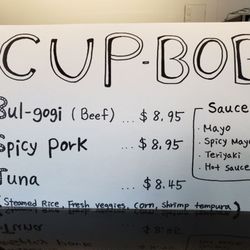 CUP-BOB
Bul-gogi (Beef) ... $8.95
Spicy pork ... $8.95
Tuna ... $8.45
Sauce
· Mayo
· Spicy Mayo
· Teriyaki
· Hot sauce
(Steamed Rice, Fresh veggies, corn, shrimp tempura)